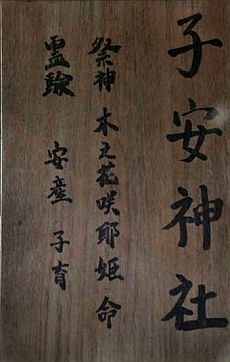 子安神社
祭神 木之花咲耶姫命
霊験 安産 子育